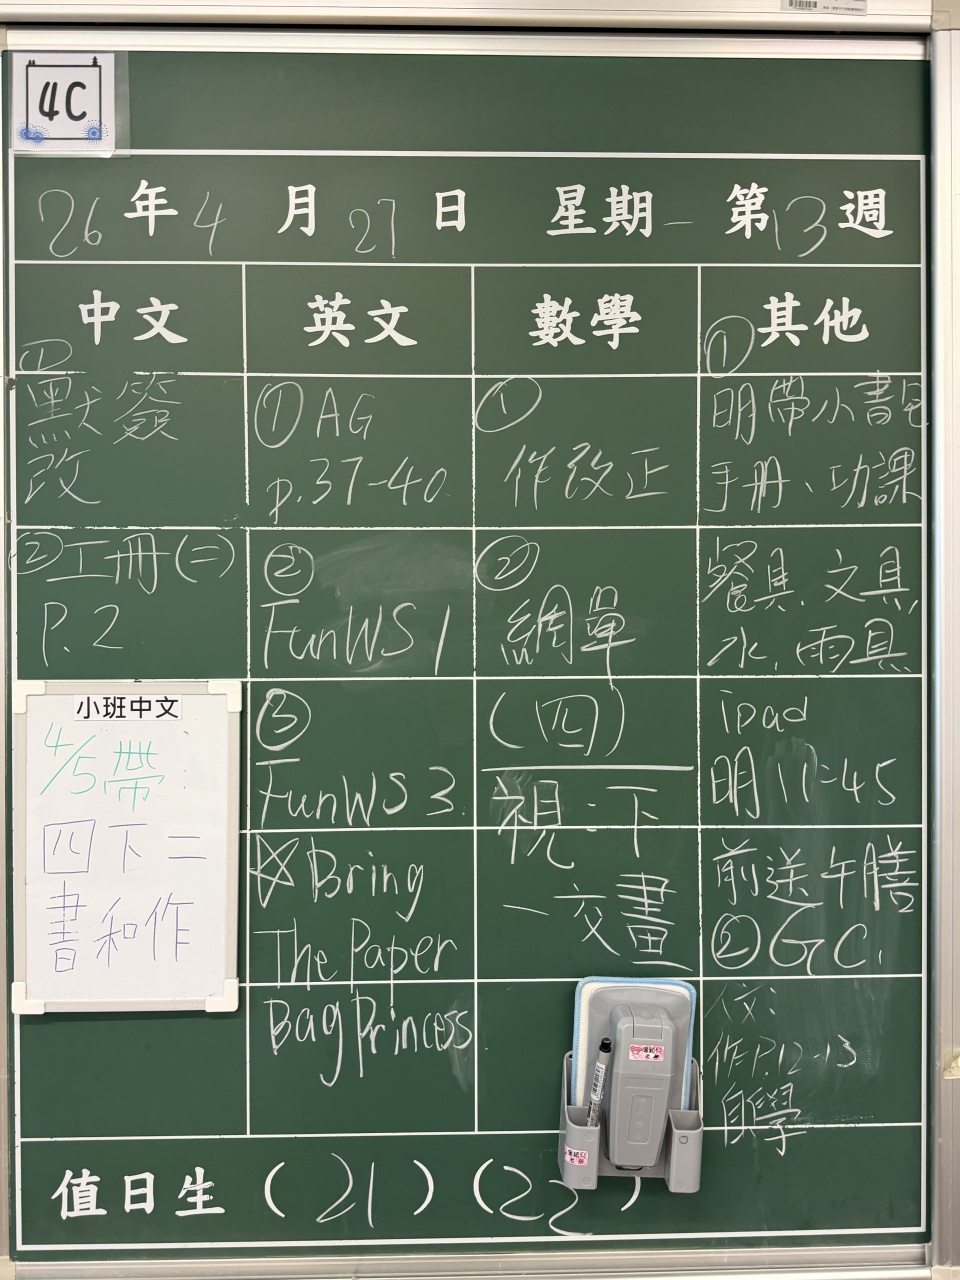 4C
26年4月27日 星期一 第13週
中文
①
默簽
改
② 工冊(二)
P.2
小班中文
4/5帶:
四下二
書和作
英文
① AG
p.37-40
②
FunWS 1
③
FunWS 3
Bring
The Paper
Bag Princess
數學
①
作改正
②
網單
(四)
視:下
一交畫
其他
①
明帶小書包
手冊、功課
餐具、文具,
水、雨具
ipad
明11:45
前送午膳
② GC.
交:
作P.12-13
自學
值日生 (21) (22)